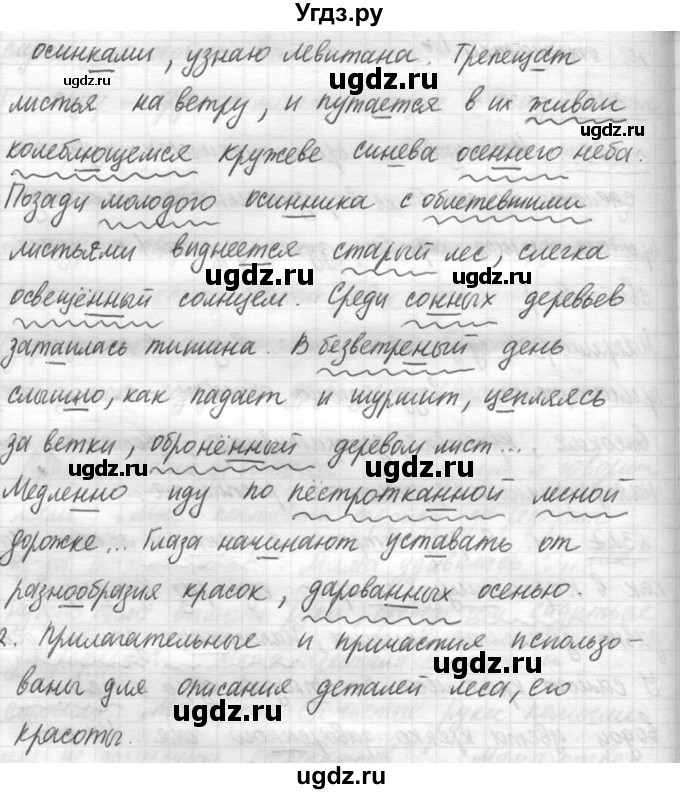 Угдз.ру
осинками, узнаю Левитана. Трепещат
листья на ветру, и путается в их живом
колеблющемся кружеве синева осеннего неба.
Позади молодого осинника с облетевшими
листьями виднеется старый лес, слегка
освещённый солнцем. Среди сонных деревьев
затаилась тишина. В безветреный день
слышно, как падает и шуршит, цепляясь
за ветки, обронённый деревом лист...
Медленно иду по пёстротканной лесной
дорожке... Глаза начинают уставать от
разнообразия красок, дарованных осенью.
2. Прилагательные и причастия использо-
ваны для описания деталей леса, его
красоты.
ugdz.ru
ugdz.ru
ugdz.ru
ugdz.ru
ugdz.ru
ugdz.ru
ugdz.ru
ugdz.ru
ugdz.ru
ugdz.ru
ugdz.ru